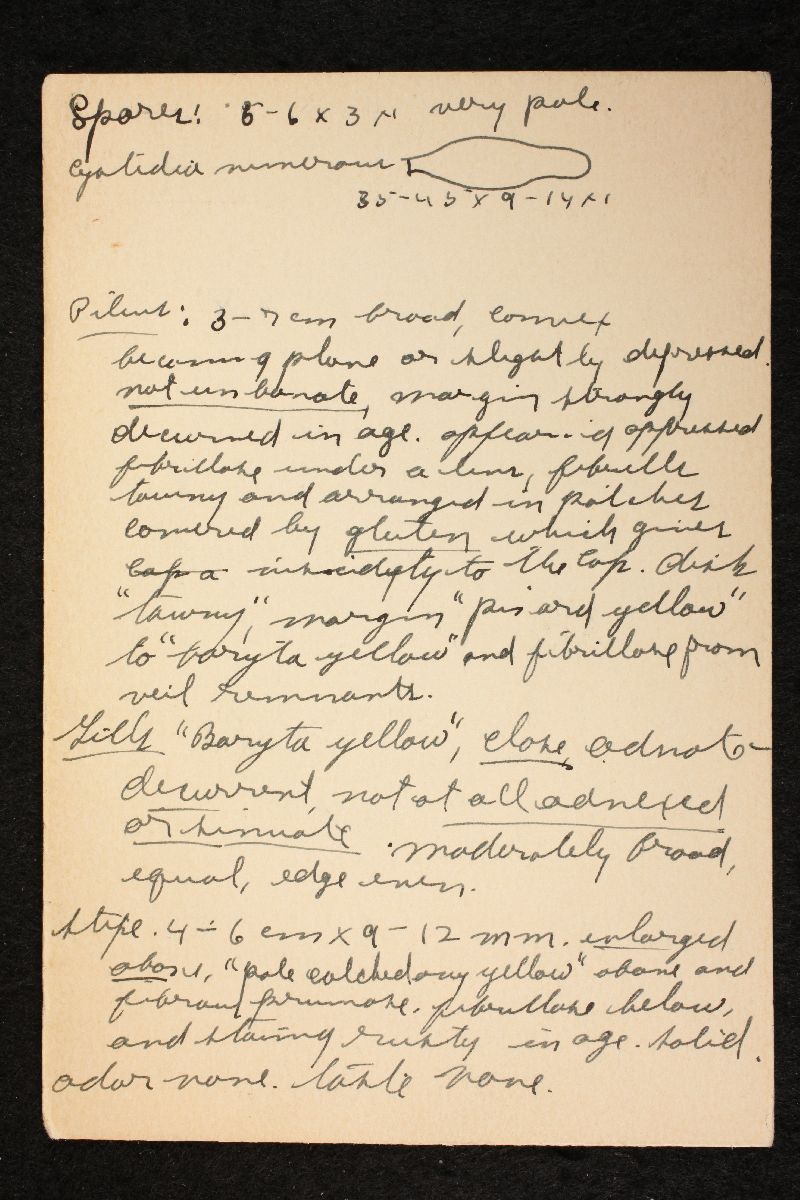 Spores: 5-6 x 3 µ very pale.
Cystidia numerous
35-45 x 9-14 µ
Pileus: 3-7 cm broad, convex
becoming plane or slightly depressed.
not umbonate, margin strongly
decurved in age. appearing appressed
fibrillose under a lens, fibrills
tawny and arranged in patches
covered by gluten which gives
cap a viscidity to the cap. disk
"tawny", margin "pinard yellow"
to "baryta yellow" and fibrillose from
veil remnants.
Gills "Baryta yellow", close, adnate-
decurrent, not at all adnexed
or sinuate. moderately broad,
equal, edge even.
Stipe. 4-6 cm x 9-12 mm. enlarged
above, "pale calchedony yellow" above and
fibrous pruinose. fibrillose below,
and staining rusty in age. solid.
odor none. taste none.